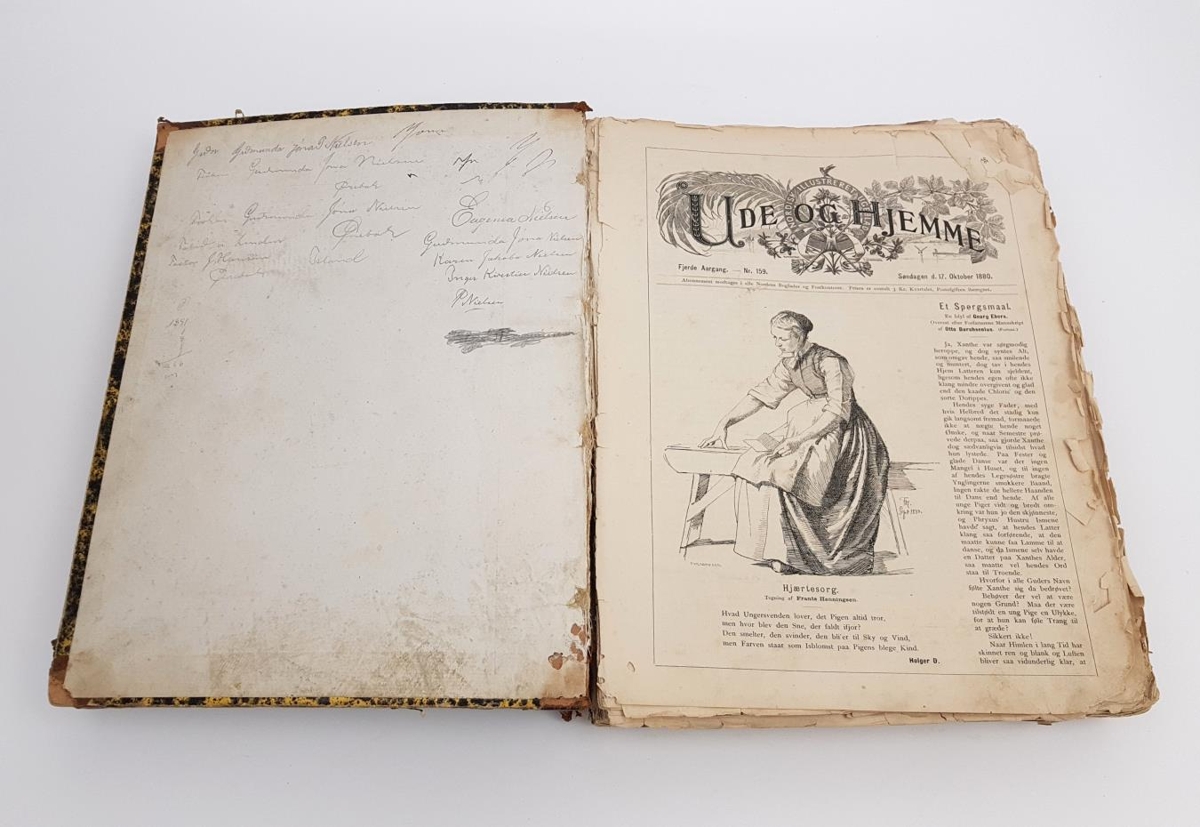 Gudmunda Jona Nielsen Jona
Gudmunda Jona Nielsen
Gudmunda Jona Nielsen
Eugenia Nielsen
Gudmunda Jona Nielsen
Karen Jakobe Nielsen
Inger Kirstin Nielsen
P Nielsen
ILLUSTRERET
UDE OG HJEMME
Fjerde Aargang. — Nr. 159.
Søndagen d. 17. Oktober 1880.
Abonnement modtages i alle Nordens Boglader og Postkontorer. Prisen er overalt 3 Kr. Kvartalet, Postafgiften iberegnet.
Hjærtesorg.
Tegning af Frants Henningsen.
Hvad Ungersvenden lover, det Pigen altid tror,
men hvor blev den Sne, der faldt ifjor?
Den smelter, den svinder, den bli'er til Sky og Vind,
men Farven staar som Isblomst paa Pigens blege Kind.
Holger D.
Et Spørgsmaal.
En Idyl af Georg Ebers.
Oversat efter Forfatterens Manuskript
af Otto Borchsenius. (Fortsat.)
Ja, Xanthe var sørgmodig
heroppe, og dog syntes Alt,
som omgav hende, saa smilende
og muntert, dog tav i hendes
Hjem Latteren kun sjeldent,
ligesom hendes egen ofte ikke
klang mindre overgivent og glad
end den kaade Chloris' og den
sorte Dorippes.
Hendes syge Fader, med
hvis Helbred det stadig kun
gik langsomt fremad, formaaede
ikke at nægte hende noget
Ønske, og naar Semestre prø-
vede derpaa, saa gjorde Xanthe
dog sædvanligvis tilsidst hvad
hun lystede. Paa Fester og
glade Danse var der ingen
Mangel i Huset, og til ingen
af hendes Legesøstre bragte
Ynglingerne smukkere Baand,
Ingen rakte de hellere Haanden
til Dans end hende. Af alle
unge Piger vidt og bredt om-
kring var hun jo den skjønneste,
og Phrysus' Hustru Ismene
havde sagt, at hendes Latter
klang saa forførende, at den
maatte kunne faa Lamme til at
danse, og da Ismene selv havde
en Datter paa Xanthes Alder,
saa maatte vel hendes Ord
staa til Troende.
Hvorfor i alle Guders Navn
følte Xanthe sig da bedrøvet?
Behøver der vel at være
nogen Grund? Maa der være
tilstødt en ung Pige en Ulykke,
for at hun kan føle Trang til
at græde?
Sikkert ikke!
Naar Himlen i lang Tid har
skinnet ren og blank og Luften
bliver saa vidunderlig klar, at